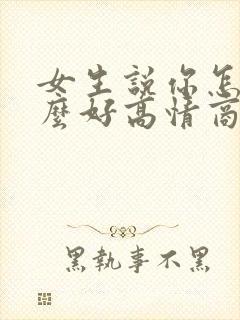 女生說你怎
麼好高情商
黑執事不黑